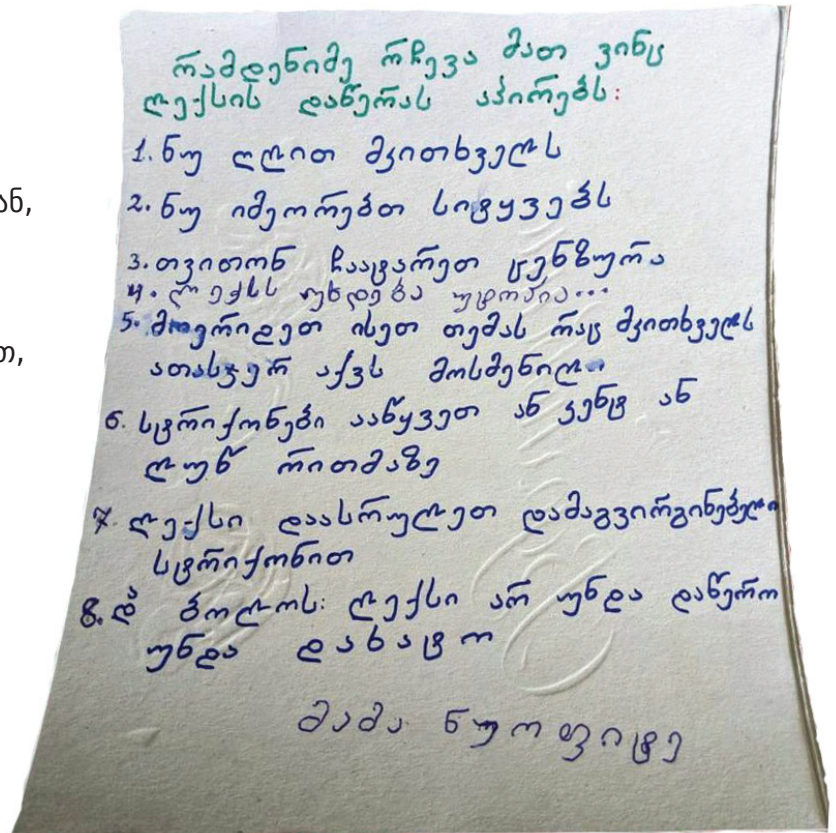 რამდენიმე რჩევა მათ ვინც
ლექსის დაწერას აპირებს:
1. ნუ ღლით მკითხველს
2. ნუ იმეორებთ სიტყვებს
3. თვითონ ჩაატარეთ ცენზურა
4. ლექსს უხდება უტოპია...
5. მოერიდეთ ისეთ თემას რაც მკითხველს
ათასჯერ აქვს მოსმენილი
6. სტრიქონები ააწყვეთ ან კენტ ან
ლუწ რითმაზე
7. ლექსი დაასრულეთ დამაგვირგინებელი
სტრიქონით
8. და ბოლოს: ლექსი არ უნდა დაწერო
უნდა დახატო
მამა ნეოფიტე
ან,
თ,